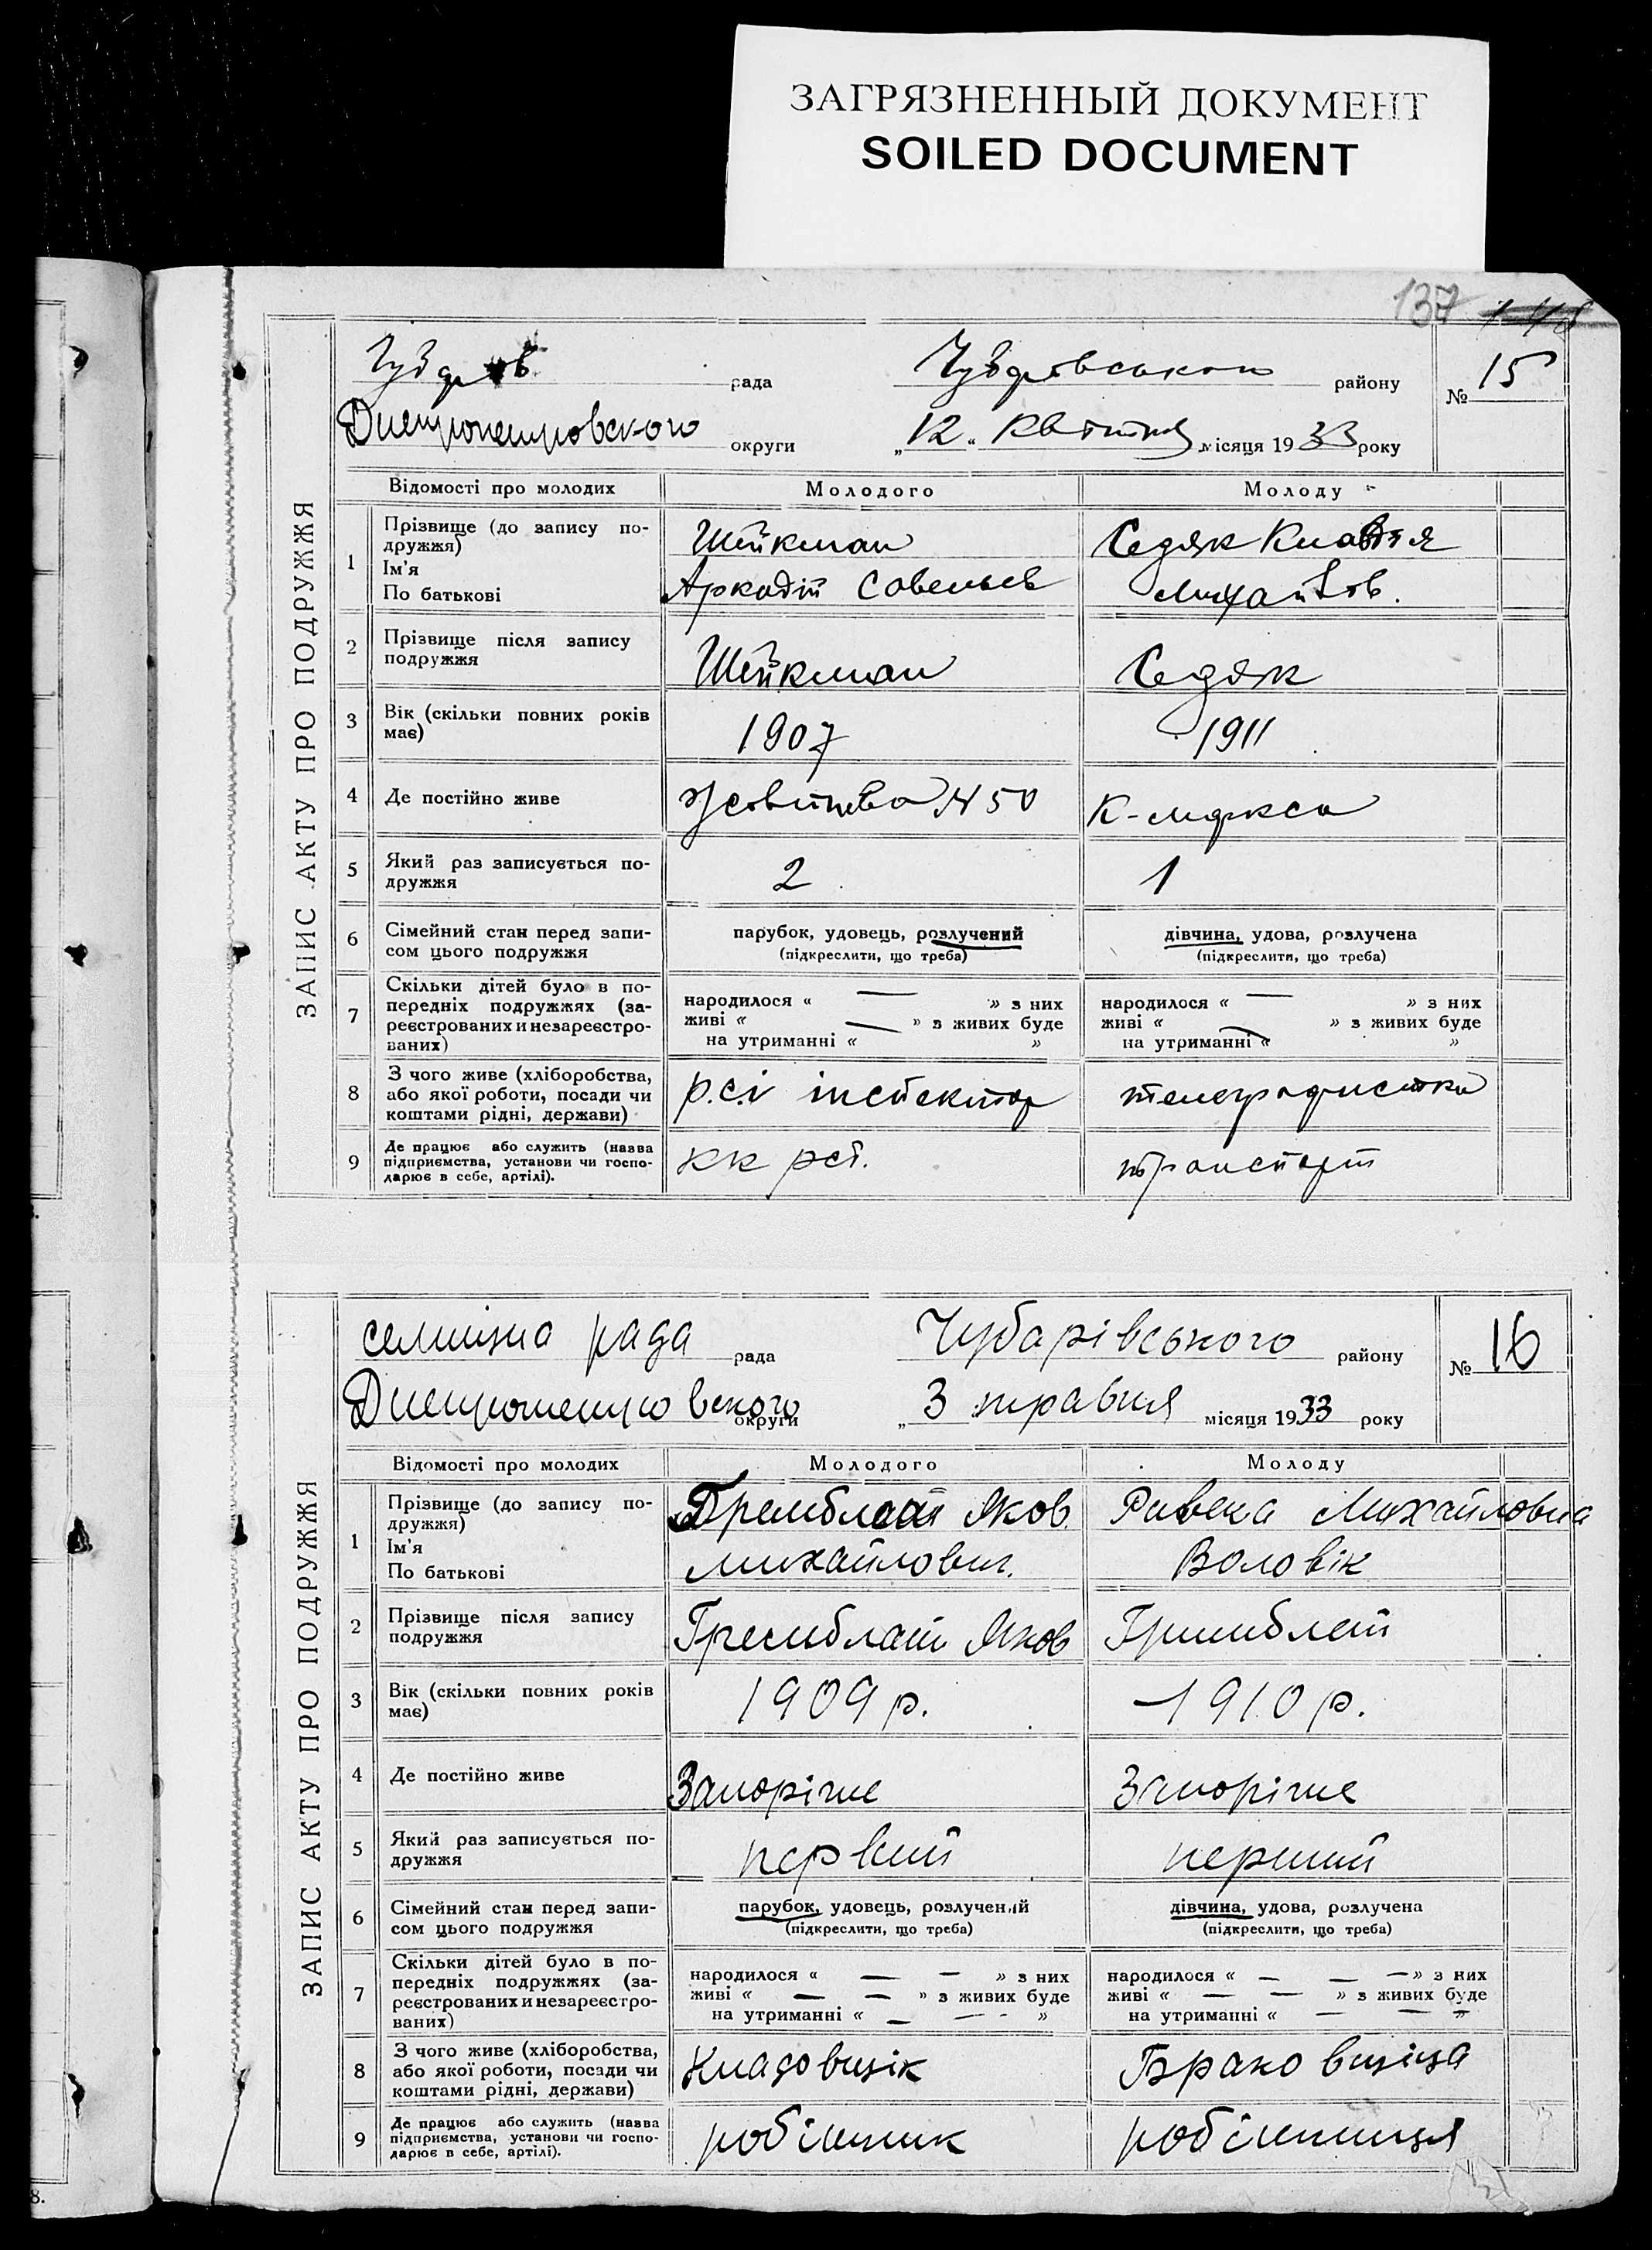 ЗАГРЯЗНЕННЫЙ ДОКУМЕНТ
SOILED DOCUMENT
137
ЗАПИС АКТУ ПРО ПОДРУЖЖЯ
рада району № 15
Днепропетровского округи „12„ Квітня місяця 1933 року
Відомості про молодих Молодого Молоду
1 Прізвище (до запису по-
дружжя)
Ім'я
По батькові
Шейкман
Аркадій Савельев
Седяк Клавдія
Михайлов.
2 Прізвище після запису
подружжя
Шейкман Седяк
3 Вік (скільки повних років
має)
1907 1911
4 Де постійно живе N 50 К-Маркса
5 Який раз записується по-
дружжя
2 1
6 Сімейний стан перед запи-
сом цього подружжя
парубок, удовець, розлучений
(підкреслити, що треба)
дівчина, удова, розлучена
(підкреслити, що треба)
7 Скільки дітей було в по-
передніх подружжях (за-
реєстрованих и незареєстро-
ваних)
народилося « — » з них
живі « — » з живих буде
на утриманні « »
народилося « — » з них
живі « » з живих буде
на утриманні « »
8 З чого живе (хліборобства,
або якої роботи, посади чи
коштами рідні, держави)
р.с.і інспектор телеграфистка
9 Де працює або служить (назва
підприємства, установи чи госпо-
дарює в себе, артілі).
КК рсі. транспорт
ЗАПИС АКТУ ПРО ПОДРУЖЖЯ
селищна рада рада Чубарівського району № 16
Днепропетровского округи „ 3 травня місяця 1933 року
Відомості про молодих Молодого Молоду
1 Прізвище (до запису по-
дружжя)
Ім'я
По батькові
Гремблат Яков
Михайлович.
Ривека Михайловна
Воловік
2 Прізвище після запису
подружжя
Гремблат Яков Гримблет
3 Вік (скільки повних років
має)
1909 р. 1910 р.
4 Де постійно живе Запоріжже Запоріжже
5 Який раз записується по-
дружжя
первий перший
6 Сімейний стан перед запи-
сом цього подружжя
парубок, удовець, розлучений
(підкреслити, що треба)
дівчина, удова, розлучена
(підкреслити, що треба)
7 Скільки дітей було в по-
передніх подружжях (за-
реєстрованих и незареєстро-
ваних)
народилося « — — » з них
живі « — — » з живих буде
на утриманні « — — »
народилося « — — — » з них
живі « — — » з живих буде
на утриманні « — — »
8 З чого живе (хліборобства,
або якої роботи, посади чи
коштами рідні, держави)
Кладовщік Браковщіца
9 Де працює або служить (назва
підприємства, установи чи госпо-
дарює в себе, артілі).
робітник робітниця